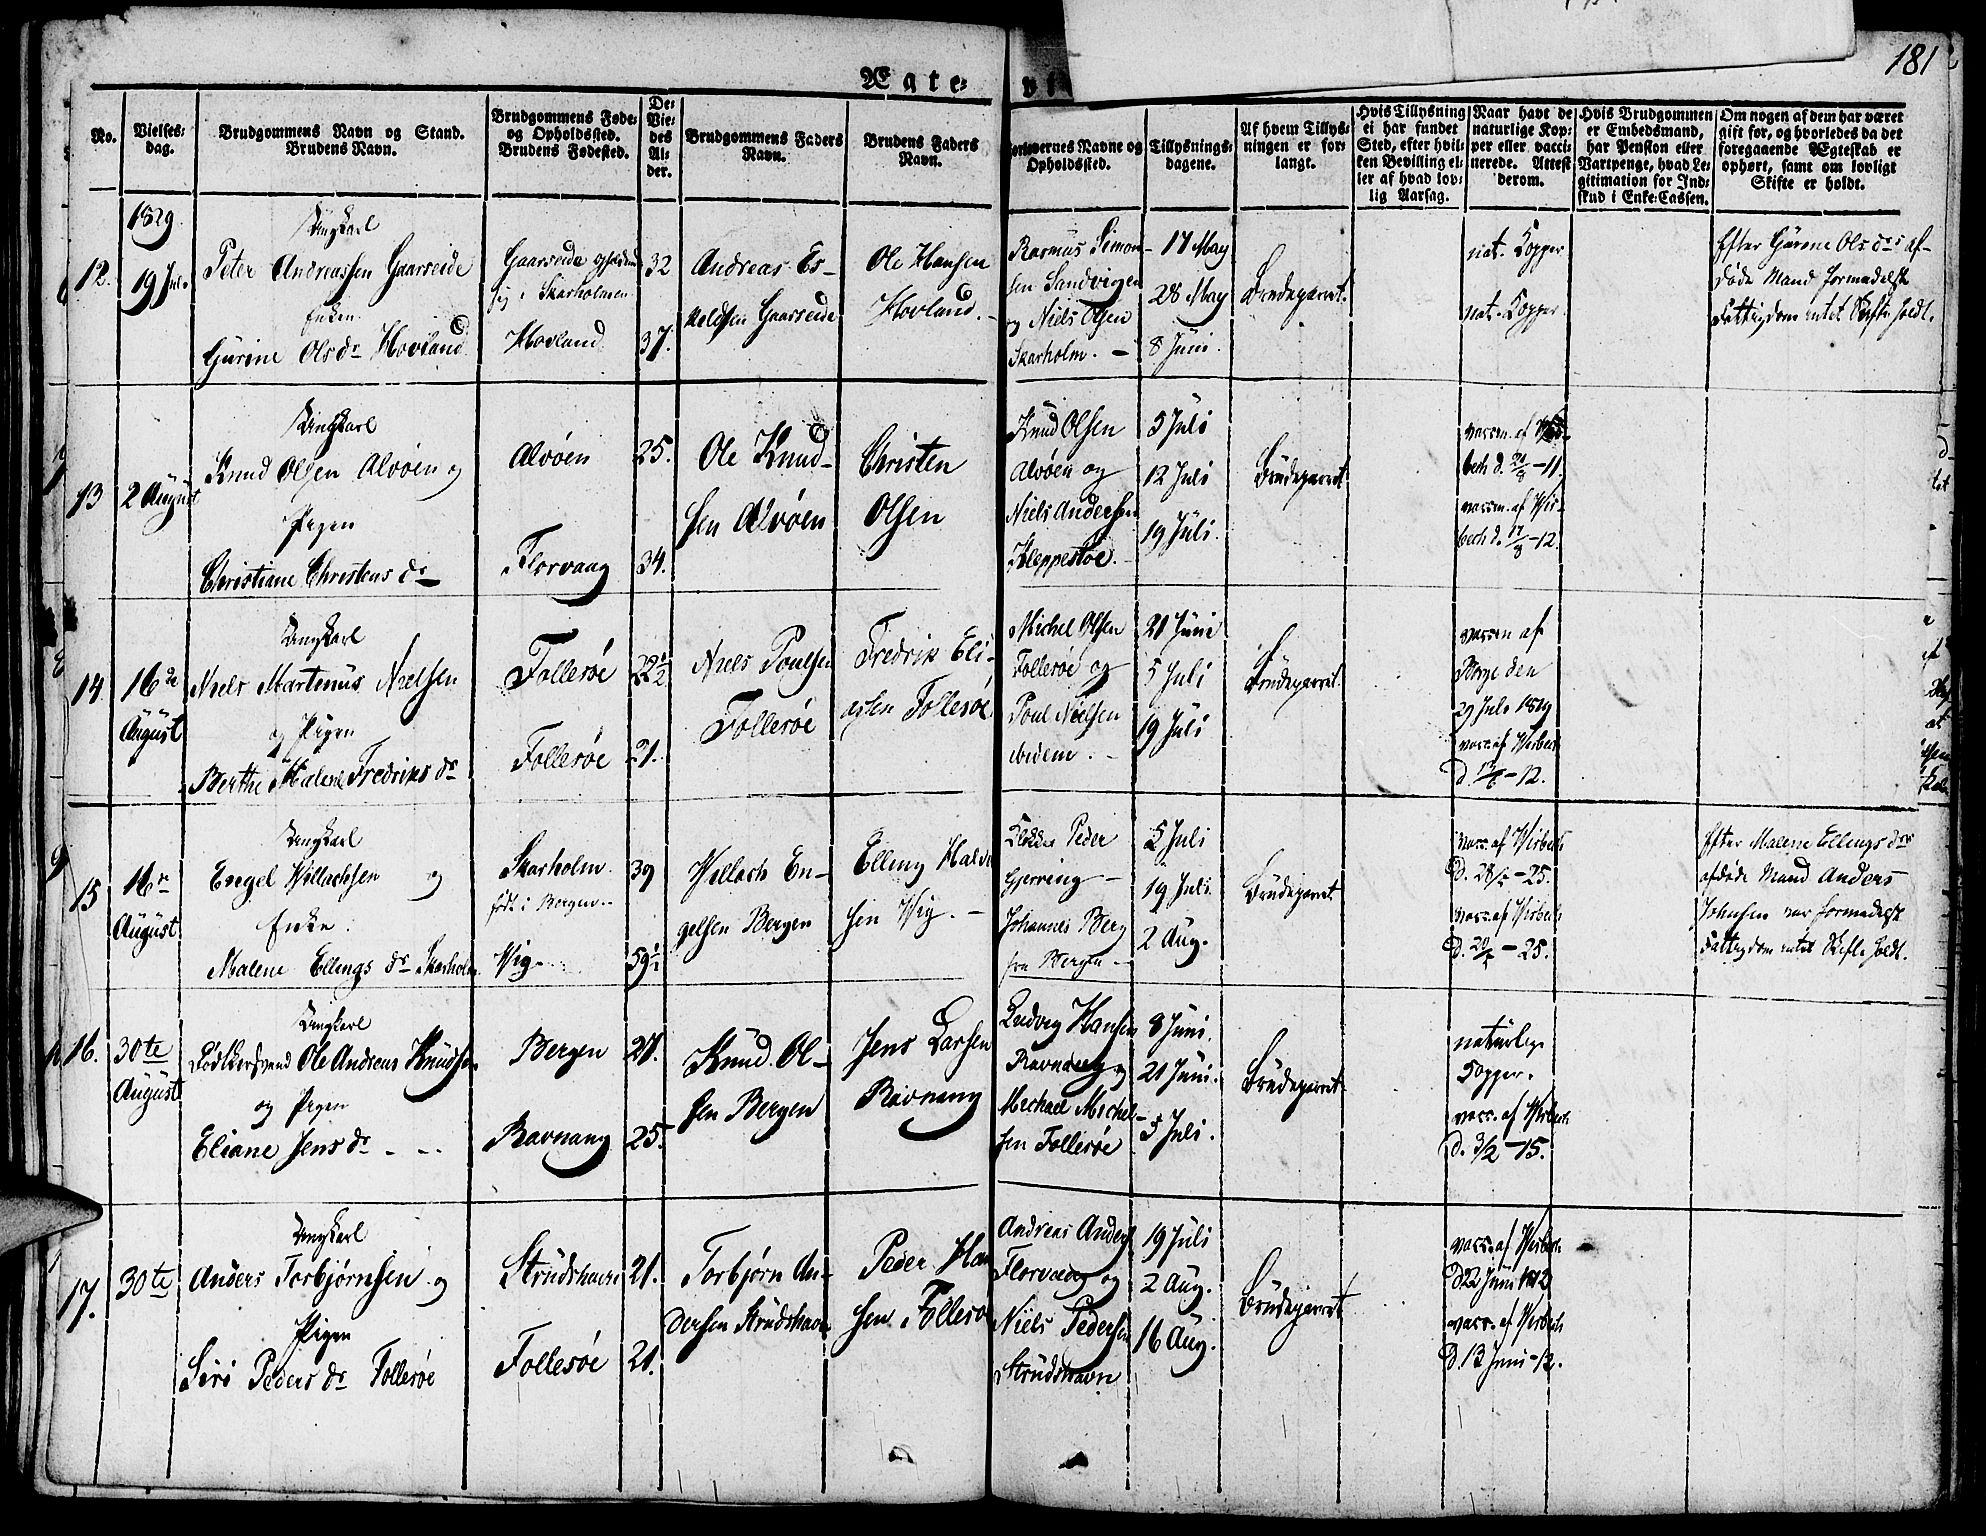 181
Ægte=
No.
Vielses=
dag.
Brudgommens Navn og Stand.
Brudens Navn.
Brudgommens Føde=
og Opholdssted.
Brudens Fødested.
De=
Vie=
des
Al=
der.
Brudgommens Faders
Navn.
Brudens Faders
Navn.
Navne og
Opholdssted.
Tillysnings=
dagene.
Af hvem Tillys=
ningen er for=
langt.
Hvis Tillysning
ei har fundet
Sted, efter hvil=
ken Bevilling el=
ler af hvad lov=
lig Aarsag.
Naar havt de
naturlige Kop=
per eller vacci=
nerede. Attest
derom.
Hvis Brudgommen
er Embedsmand,
har Pension eller
Vartpenge, hvad Le=
gitimation for Ind=
skud i Enke=Cassen.
Om nogen af dem har været
gift før, og hvorledes da det
foregaaende Ægteskab er
ophørt, samt om lovligt
Skifte er holdt.
1829.
12.
19 Juli
Ungkarl
Peter Andreassen Gaarseide
Enken
Gurine Olsdr Hovland
Gaarseide
i Skarholmen
Hovland
32
37.
Andreas Es-
kildsen Gaarseide
Ole Hansen
Hovland.
Rasmus Simon-
sen Sandvigen
og Niels Olsen
Skarholm. -
17 May
28 May
8 Juni.
Brudeparret.
nat. Kopper
nat. Kopper
Efter Gurine Olsdrs af-
døde Mand formedelst
Fattigdom intet Skifte holdt.
13
2 August
Ungkarl
Knud Olsen Alvøen og
Pigen
Christiane Christens dr
Alvøen
Florvaag
25.
34.
Ole Knud-
sen Alvøen
Christen
Olsen
Knud Olsen
Alvøen og
Niels Andersen
Kleppestøe.
5 Juli
12 Juli
19 Juli.
Brudeparret
vaccn. af Wis-
bech d. -11.
vaccn. af Wis-
bech d. 17/8-12.
14.
16de
August
Ungkarl
Niels Martinus Nielsen
og Pigen
Berthe Malene Fredriks dr
Follesøe
Follesøe
22½
21.
Niels Poulsen
Follesøe
Fredrik Eli-
assen Follesøe
Michel Olsen
Follesøe og
Poul Nielsen
ibidem. -
21 Juni
5 Juli
19 Juli
Brudeparret.
vaccn af
den
29 Juli 1819
vacc. af Wisbech
d. -12.
15
16de
August
Ungkarl
Engel Willachsen og
Enke.
Malene Ellings dr Skarholm
Skarholm.
født i Bergen.
Wig.
39
59½
Willach En-
gelsen Bergen
Elling Halvor
sen Wig. -
Klokker Peder
Gjerring -
Johannes Berg
fra Bergen -
5 Juli
19 Juli.
2 Aug.
Brudeparret
vacc. af Wisbech
D. -25.
vacc. af Wisbech
D. -25.
Efter Malene Ellings drs
afdøde Mand Anders
Johnsen var formedelst
Fattigdom intet Skifte holdt.
16.
30te
August
Ungkarl
Ole Andreas Knudsen
og Pigen
Eliane Jens dr - - -
Bergen
Ravnang
21.
25.
Knud Ol-
sen Bergen
Jens Larsen
Ravnang
Ludvig Hansen
Ravnang og
Michael Michel-
sen Follesøe
8 Juni.
21 Juni.
5 Juli.
Brudeparret
naturlige
Kopper.
vacc. af Wisbech
D. 3/2-15.
17.
30te
Ungkarl
Anders Torbjørnsen og
Pigen
Siri Peders dr Follesøe
Strudshavn
Follesøe
21.
21.
Torbjørn An-
dersen Strudshavn
Peder Han
sen Follesøe
Andreas Anders
Florvaag og
Niels Pedersen
Strudshavn
19 Juli
2 Aug.
16 Aug.
Brudeparret
vacc. af Wisbech
D 22 Juni 1812
vacc. af Wisbech
D. 13 Juni-12.